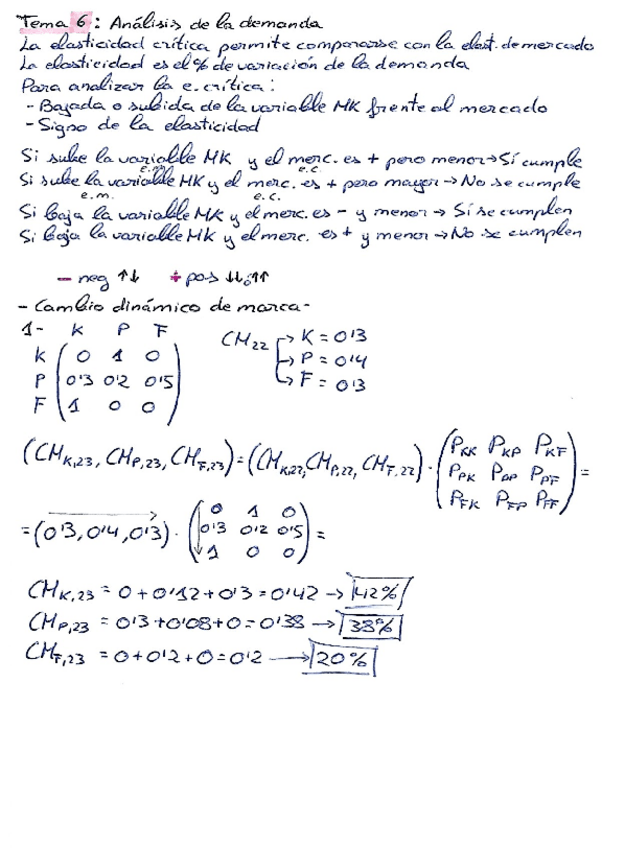 Tema 6: Análisis de la demanda
La elasticidad crítica permite compararse con la elast. de mercado
La elasticidad es el % de variación de la demanda
Para analizar la e. crítica:
- Bajada o subida de la variable MK frente al mercado
- Signo de la elasticidad
Si sube la variable MK y el merc. es + pero menor → Sí cumple
e.m. e.c.
Si sube la variable MK y el merc. es + pero mayor → No se cumple
e.m. e.c.
Si baja la variable MK y el merc. es - y menor → Sí se cumplen
Si baja la variable MK y el merc. es + y menor → No se cumplen
- neg ↑↓ + pos ↓↓ ó ↑↑
- Cambio dinámico de marca -
1- K P F
K 0 1 0
P 0'3 0'2 0'5
F 1 0 0
CM22 → K = 0'3
→ P = 0'4
→ F = 0'3
(CMK,23, CMP,23, CMF,23) = (CMK,22, CMP,22, CMF,22) · (PKK PKP PKF
PPK PPP PPF
PFK PFP PFF) =
= (0'3, 0'4, 0'3) · (0 1 0
0'3 0'2 0'5
1 0 0) =
CMK,23 = 0 + 0'12 + 0'3 = 0'42 → 42%
CMP,23 = 0'3 + 0'08 + 0 = 0'38 → 38%
CMF,23 = 0 + 0'2 + 0 = 0'2 → 20%